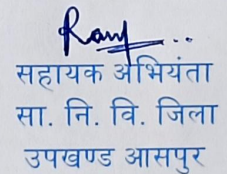 सहायक अभियंता
सा. नि. वि. जिला
उपखण्ड आसपुर